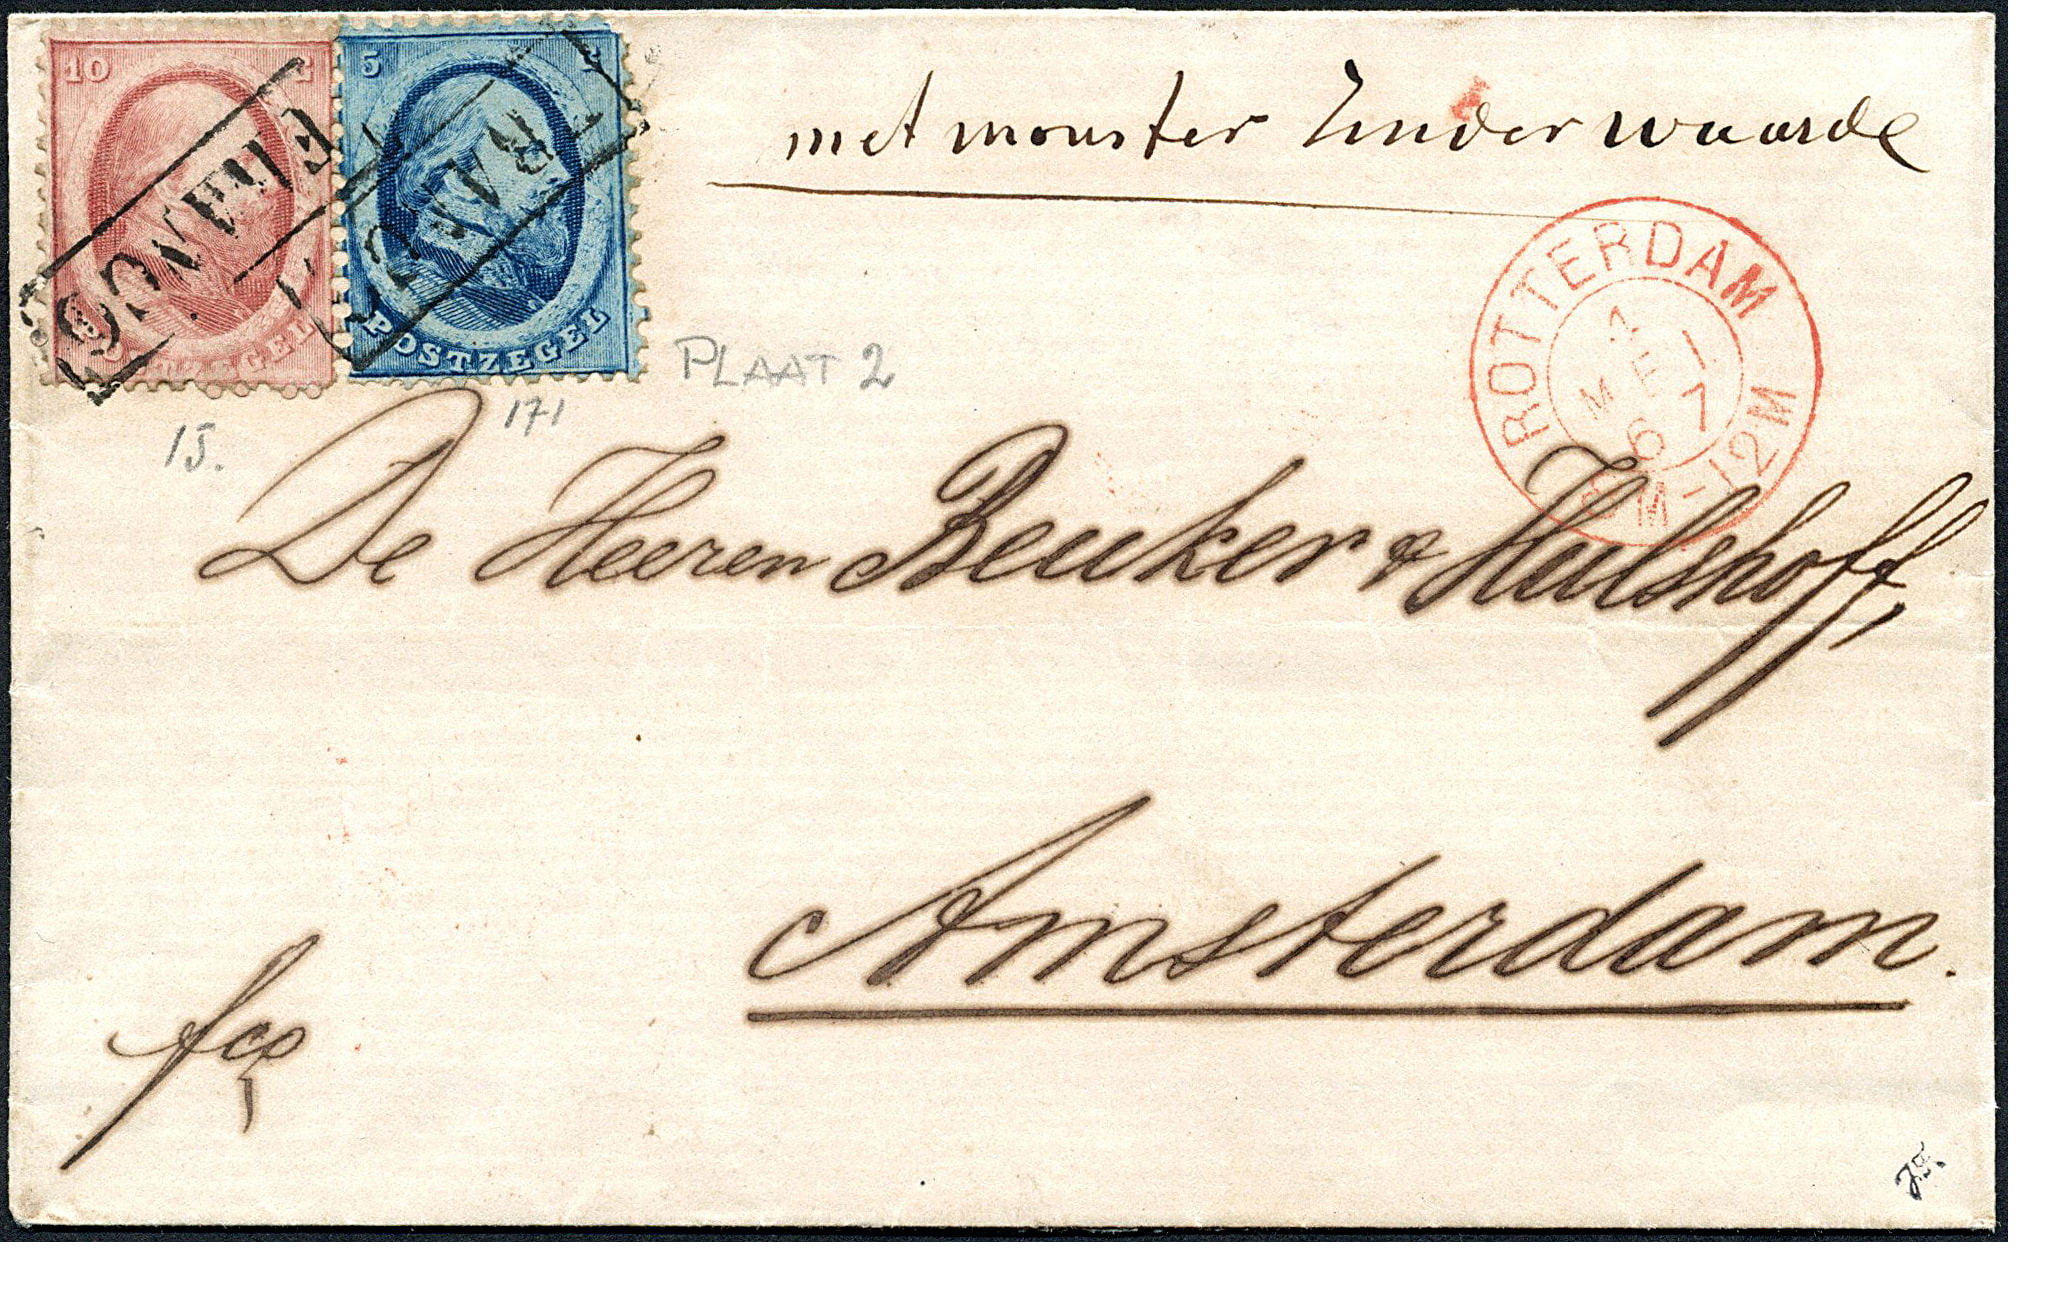 10 C
5
FRANCO
FRANCO
POSTZEGEL
POSTZEGEL
met monster zonder waarde
ROTTERDAM
1 1
MEI
67
8M-12M
PLAAT 2
15.
171
De Heeren Beuker & Hulshoff,
Amsterdam.
fco